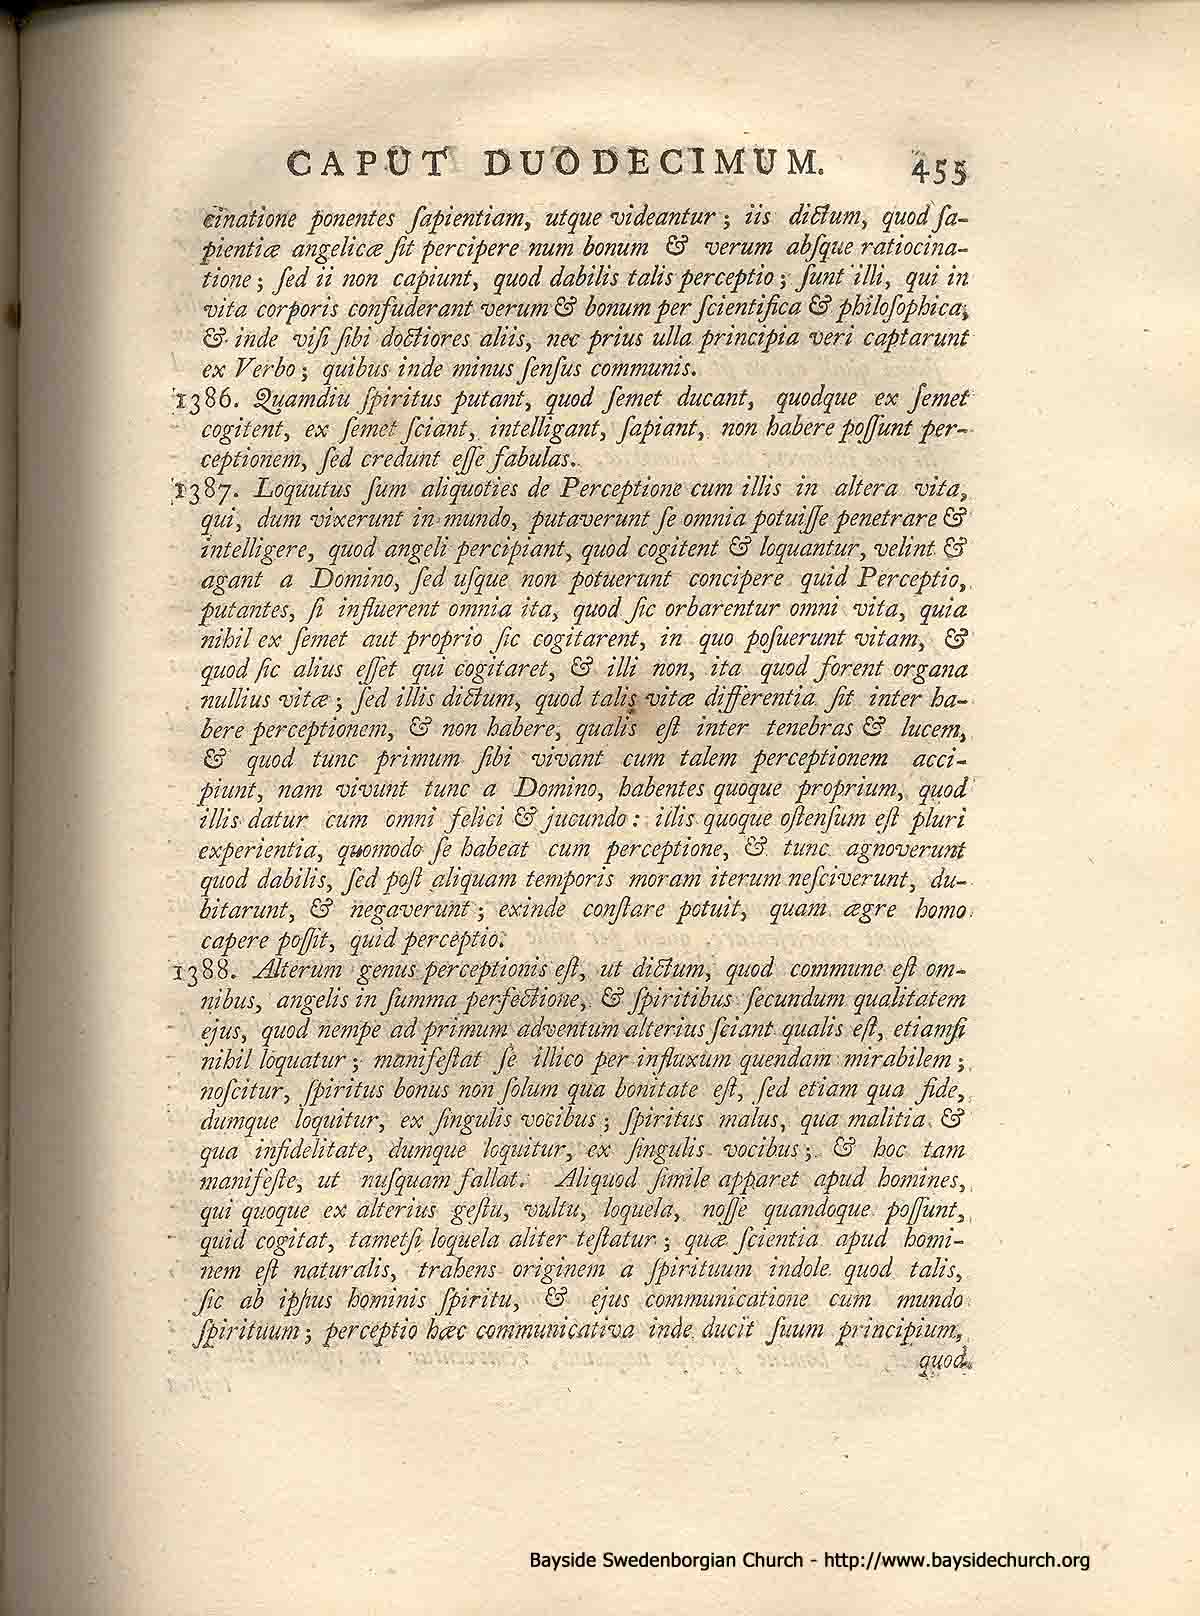 CAPUT DUODECIMUM. 455
cinatione ponentes ſapientiam, utque videantur; iis dictum, quod ſa-
pientiæ angelicæ ſit percipere num bonum & verum abſque ratiocina-
tione; ſed ii non capiunt, quod dabilis talis perceptio; ſunt illi, qui in
vita corporis confuderant verum & bonum per ſcientifica & philoſophica,
& inde viſi ſibi doctiores aliis, nec prius ulla principia veri captarunt
ex Verbo; quibus inde minus ſenſus communis.
1386. Quamdiu ſpiritus putant, quod ſemet ducant, quodque ex ſemet
cogitent, ex ſemet ſciant, intelligant, ſapiant, non habere poſſunt per-
ceptionem, ſed credunt eſſe fabulas.
1387. Loquutus ſum aliquoties de Perceptione cum illis in altera vita,
qui, dum vixerunt in mundo, putaverunt ſe omnia potuiſſe penetrare &
intelligere, quod angeli percipiant, quod cogitent & loquantur, velint &
agant a Domino, ſed uſque non potuerunt concipere quid Perceptio,
putantes, ſi influerent omnia ita, quod ſic orbarentur omni vita, quia
nihil ex ſemet aut proprio ſic cogitarent, in quo poſuerunt vitam, &
quod ſic alius eſſet qui cogitaret, & illi non, ita quod forent organa
nullius vitæ; ſed illis dictum, quod talis vitæ differentia ſit inter ha-
bere perceptionem, & non habere, qualis eſt inter tenebras & lucem,
& quod tunc primum ſibi vivant cum talem perceptionem acci-
piunt, nam vivunt tunc a Domino, habentes quoque proprium, quod
illis datur cum omni felici & jucundo: illis quoque oſtenſum eſt pluri
experientia, quomodo ſe habeat cum perceptione, & tunc agnoverunt
quod dabilis, ſed poſt aliquam temporis moram iterum neſciverunt, du-
bitarunt, & negaverunt; exinde conſtare potuit, quam ægre homo
capere poſſit, quid perceptio.
1388. Alterum genus perceptionis eſt, ut dictum, quod commune eſt om-
nibus, angelis in ſumma perfectione, & ſpiritibus ſecundum qualitatem
ejus, quod nempe ad primum adventum alterius ſciant qualis eſt, etiamſi
nihil loquatur; manifeſtat ſe illico per influxum quendam mirabilem;
noſcitur, ſpiritus bonus non ſolum qua bonitate eſt, ſed etiam qua fide,
dumque loquitur, ex ſingulis vocibus; ſpiritus malus, qua malitia &
qua infidelitate, dumque loquitur, ex ſingulis vocibus; & hoc tam
manifeſte, ut nuſquam fallat. Aliquod ſimile apparet apud homines,
qui quoque ex alterius geſtu, vultu, loquela, noſſe quandoque poſſunt,
quid cogitat, tametſi loquela aliter teſtatur; quæ ſcientia apud homi-
nem eſt naturalis, trahens originem a ſpirituum indole quod talis,
ſic ab ipſius hominis ſpiritu, & ejus communicatione cum mundo
ſpirituum; perceptio hæc communicativa inde ducit ſuum principium,
quod
Bayside Swedenborgian Church - http://www.baysidechurch.org